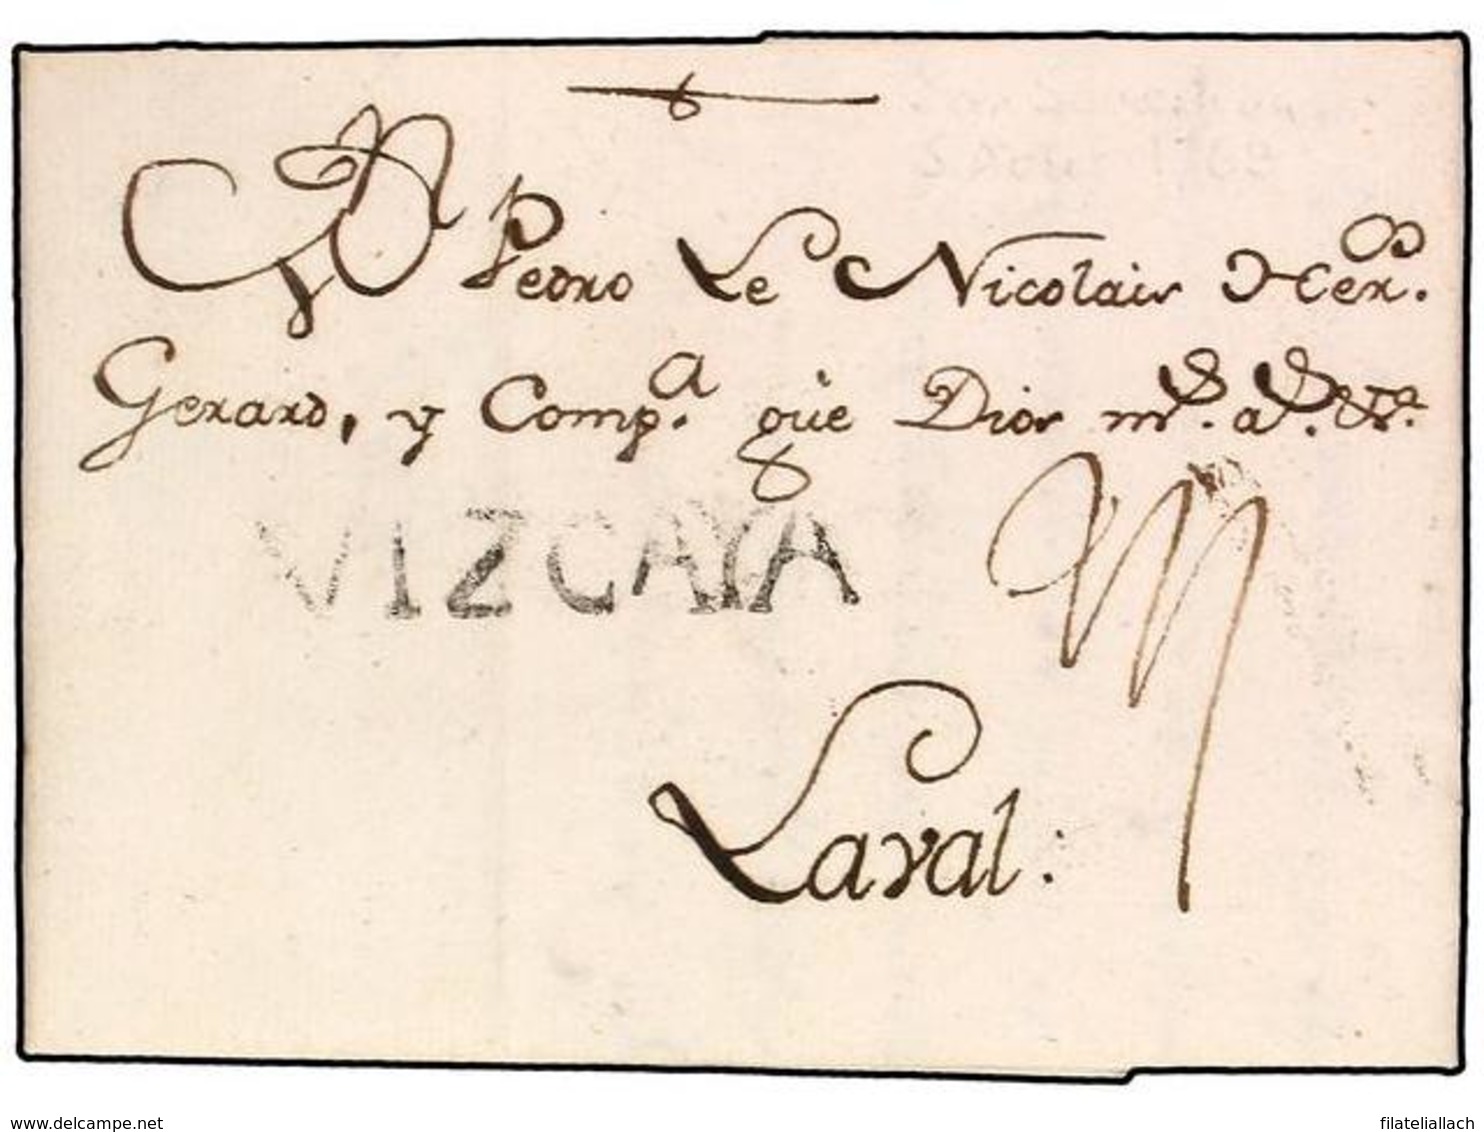 Pedro Le Nicolais Her.ᵒˢ
Gerard, y Comp.ᵃ güe Dios mˢ. aˢ. &ª.
VIZCAYA
Laval:
www.delcampe.net
filateliallach